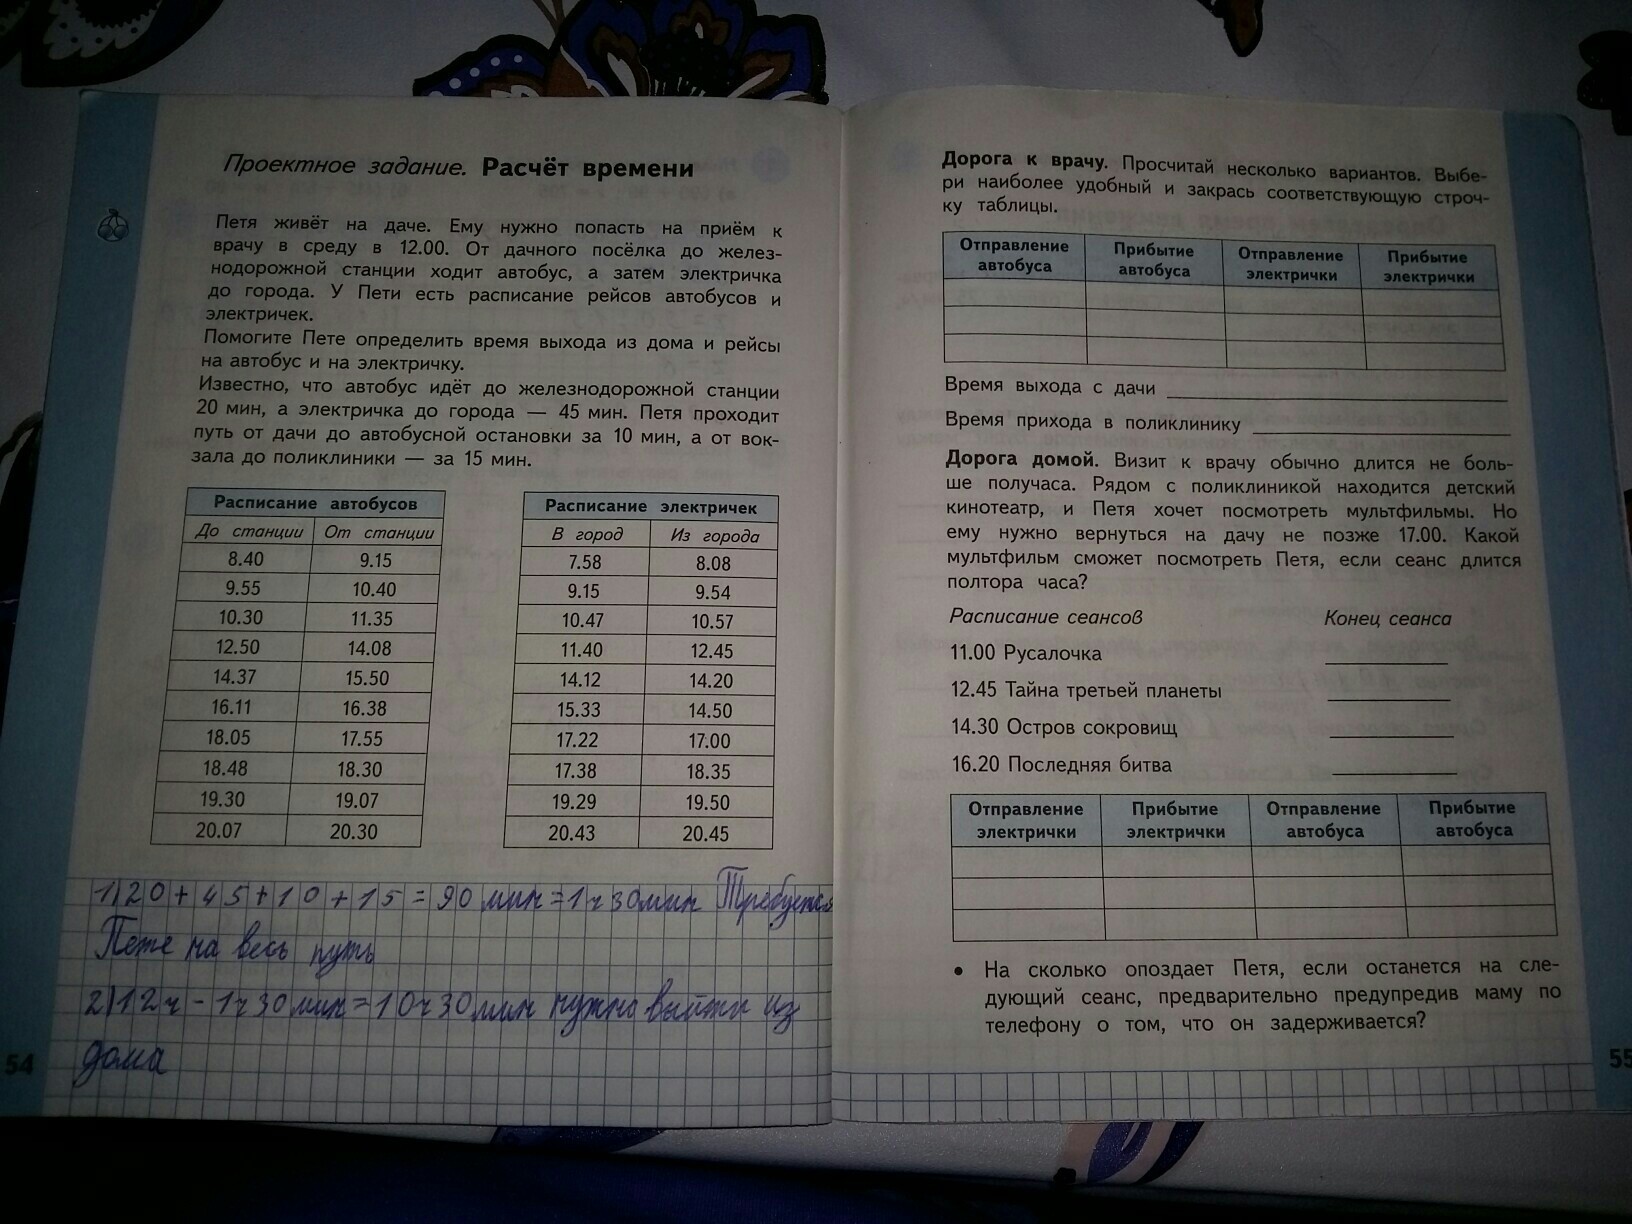 Проектное задание. Расчёт времени
Петя живёт на даче. Ему нужно попасть на приём к
врачу в среду в 12.00. От дачного посёлка до желез-
нодорожной станции ходит автобус, а затем электричка
до города. У Пети есть расписание рейсов автобусов и
электричек.
Помогите Пете определить время выхода из дома и рейсы
на автобус и на электричку.
Известно, что автобус идёт до железнодорожной станции
20 мин, а электричка до города — 45 мин. Петя проходит
путь от дачи до автобусной остановки за 10 мин, а от вок-
зала до поликлиники — за 15 мин.
Расписание автобусов
До станции От станции
8.40 9.15
9.55 10.40
10.30 11.35
12.50 14.08
14.37 15.50
16.11 16.38
18.05 17.55
18.48 18.30
19.30 19.07
20.07 20.30
Расписание электричек
В город Из города
7.58 8.08
9.15 9.54
10.47 10.57
11.40 12.45
14.12 14.20
15.33 14.50
17.22 17.00
17.38 18.35
19.29 19.50
20.43 20.45
1) 20 + 45 + 10 + 15 = 90 мин = 1 ч 30 мин Требуется
Пете на весь путь
2) 12 ч - 1 ч 30 мин = 10 ч 30 мин нужно выйти из
дома
54
Дорога к врачу. Просчитай несколько вариантов. Выбе-
ри наиболее удобный и закрась соответствующую строч-
ку таблицы.
Отправление автобуса Прибытие автобуса Отправление электрички Прибытие электрички
Время выхода с дачи
Время прихода в поликлинику
Дорога домой. Визит к врачу обычно длится не боль-
ше получаса. Рядом с поликлиникой находится детский
кинотеатр, и Петя хочет посмотреть мультфильмы. Но
ему нужно вернуться на дачу не позже 17.00. Какой
мультфильм сможет посмотреть Петя, если сеанс длится
полтора часа?
Расписание сеансов Конец сеанса
11.00 Русалочка
12.45 Тайна третьей планеты
14.30 Остров сокровищ
16.20 Последняя битва
Отправление электрички Прибытие электрички Отправление автобуса Прибытие автобуса
• На сколько опоздает Петя, если останется на сле-
дующий сеанс, предварительно предупредив маму по
телефону о том, что он задерживается?
55